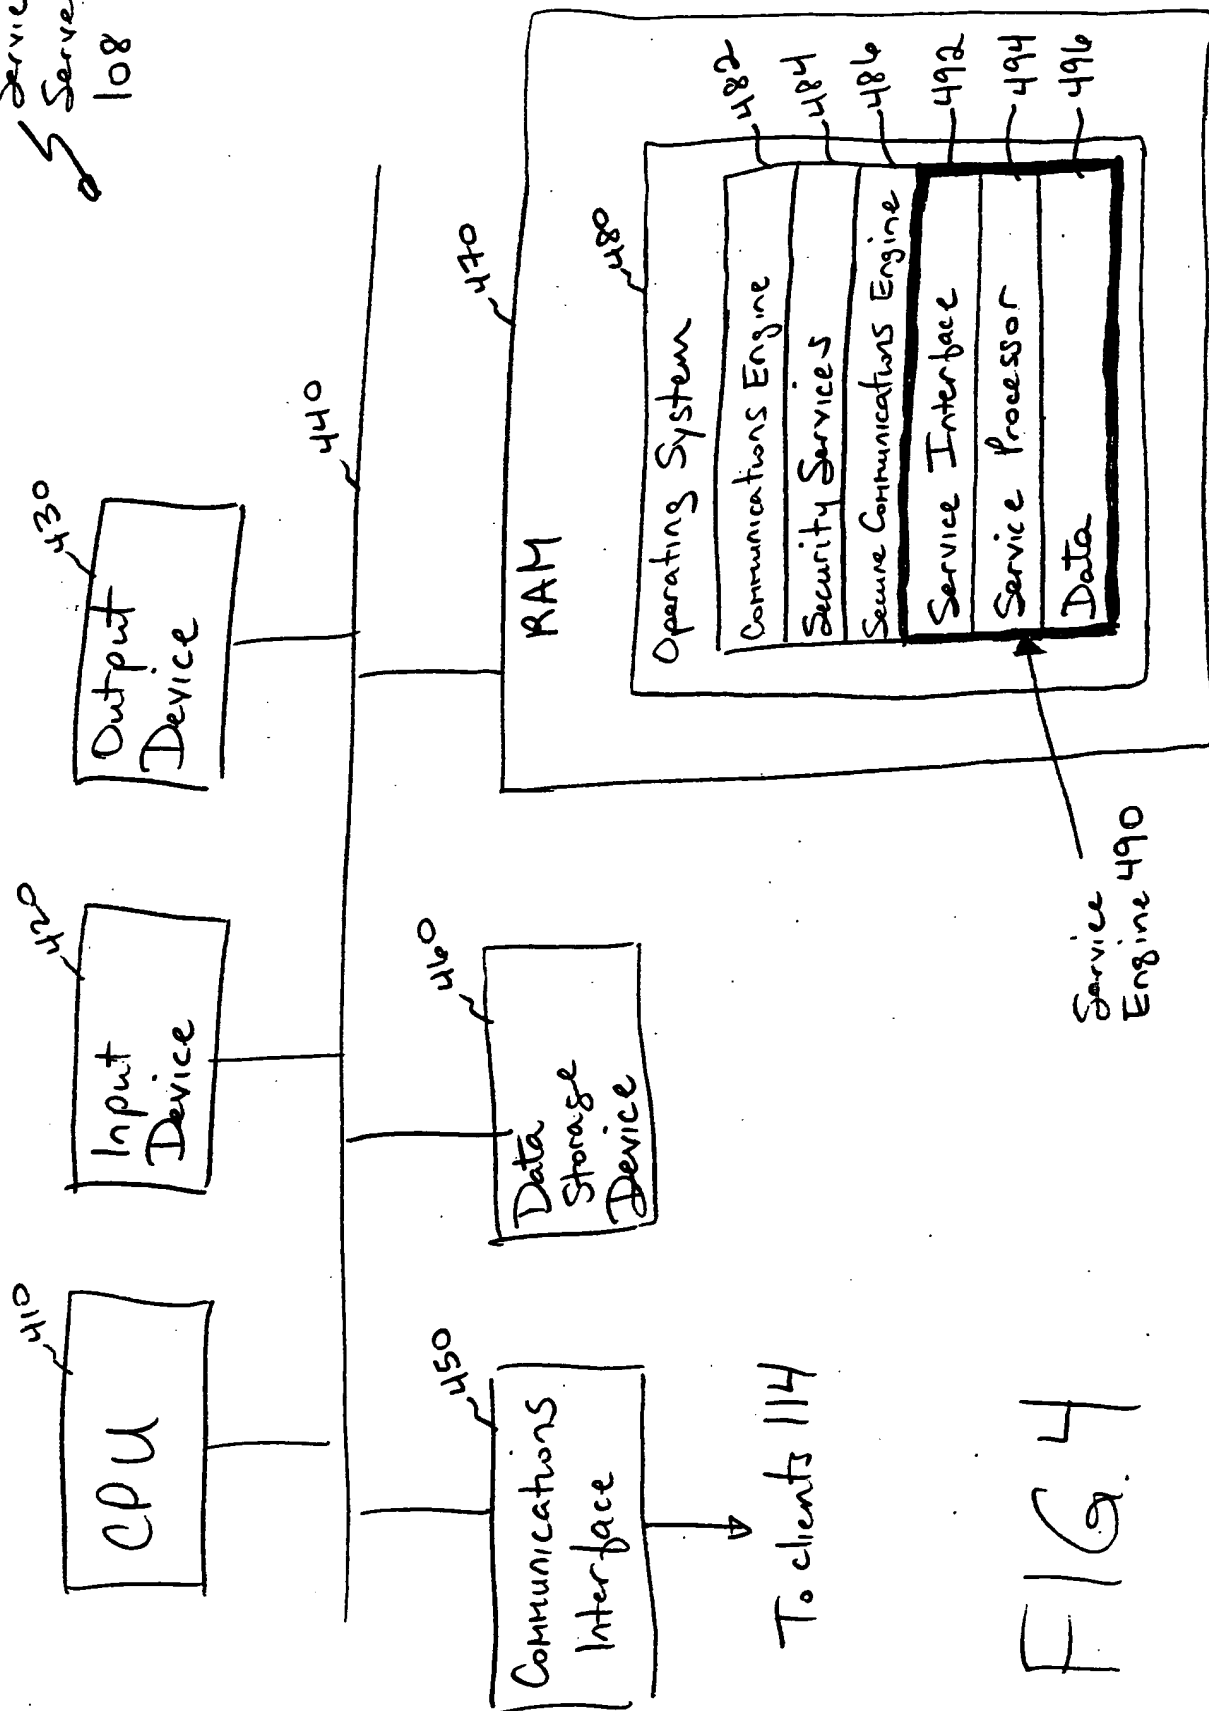 Server
108
410
CPU
420
Input
Device
430
Output
Device
440
450
Communications
Interface
To clients 114
460
Data
Storage
Device
470
RAM
480
Operating System
Communications Engine
482
Security Services
484
Secure Communications Engine
486
Service Interface
492
Service Processor
494
Data
496
Service
Engine 490
FIG. 4